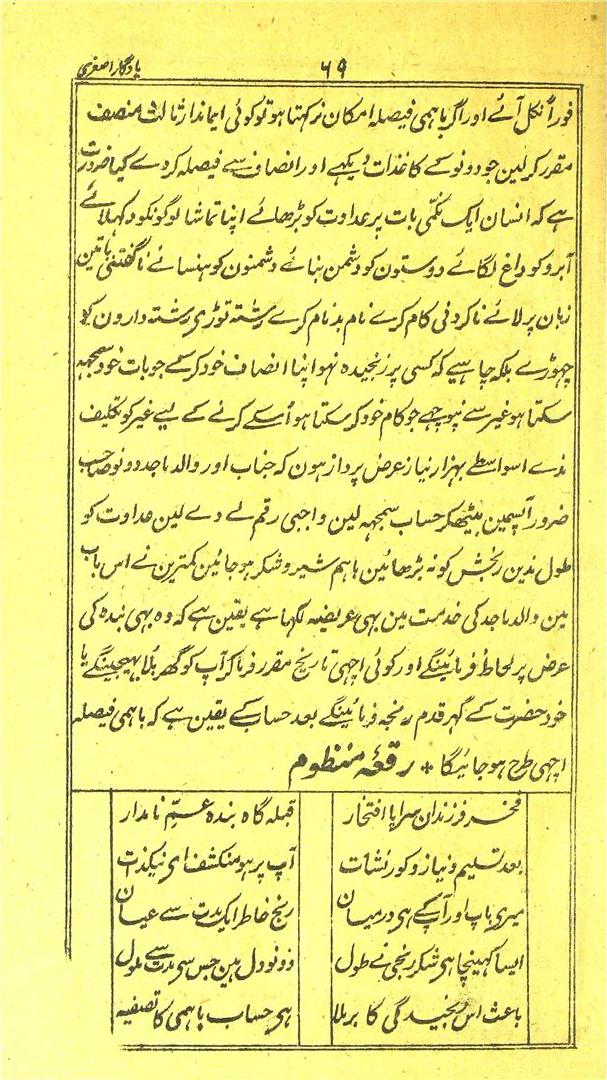 یادگار اصغری
۶۹
فوراً نکل آئے اور اگر باہمی فیصلہ امکان نرکہتا ہو تو کوئی ایماندار ثالث منصف
مقرر کر لین جو دونو کے کاغذات دیکہے اور انصاف سے فیصلہ کر دے کیا ضرورت
ہے کہ انسان ایک نکمّی بات پر عداوت کو بڑھائے اپنا تماشا لوگونکو دکہلائے
آبرو کو داغ لگائے دوستون کو دشمن بنائے دشمنون کو ہنسائے ناگفتنی باتین
زبان پر لائے ناکردنی کام کرے نام بدنام کرے رشتہ توڑی رشتہ دارون کو
چہوڑے بلکہ چاہیے کہ کسی پر رنجیدہ نہو اپنا انصاف خود کر کے جو بات خود سمجہہ
سکتا ہو غیر سے نپوچہے جو کام خود کر سکتا ہو اُسکے کرنے کے لیے غیر کو تکلیف
ندے اسواسطے بہزار نیاز عرض پرداز ہون کہ جناب اور والد ماجد دونو صاحب
ضرور آپسمین بیٹھکر حساب سمجہہ لین واجبی رقم لے دے لین عداوت کو
طول ندین رنجش کو نہ بڑھائین باہم شیر و شکر ہو جائین کمترین نے اس باب
مین والد ماجد کی خدمت مین بہی عریضہ لکہا ہے یقین ہے کہ وہ بہی بندہ کی
عرض پر لحاظ فرمائینگے اور کوئی اچہی تاریخ مقرر فرما کر آپ کو گھر بلا بہیجینگے یا
خود حضرت کے گہر قدم رنجہ فرمائینگے بعد حساب کے یقین ہے کہ باہمی فیصلہ
اچہی طرح ہو جائیگا * رقعۂ منظوم
فخر فرزندان سراپا افتخار قبلہ گاہ بندہ عمِّ نامدار
بعد تسلیم و نیاز و کورنشات آپ پر ہو منکشف ای نیکذات
میری باپ اور آپ کے ہی درمیان رنج خاطر ایک مدت سے عیان
ایسا کہینچا ہی شکر رنجی نے طول دونو دل ہین جس سی مدت سے ملول
باعث اس رنجیدگی کا برملا ہی حساب باہمی کا تصفیہ